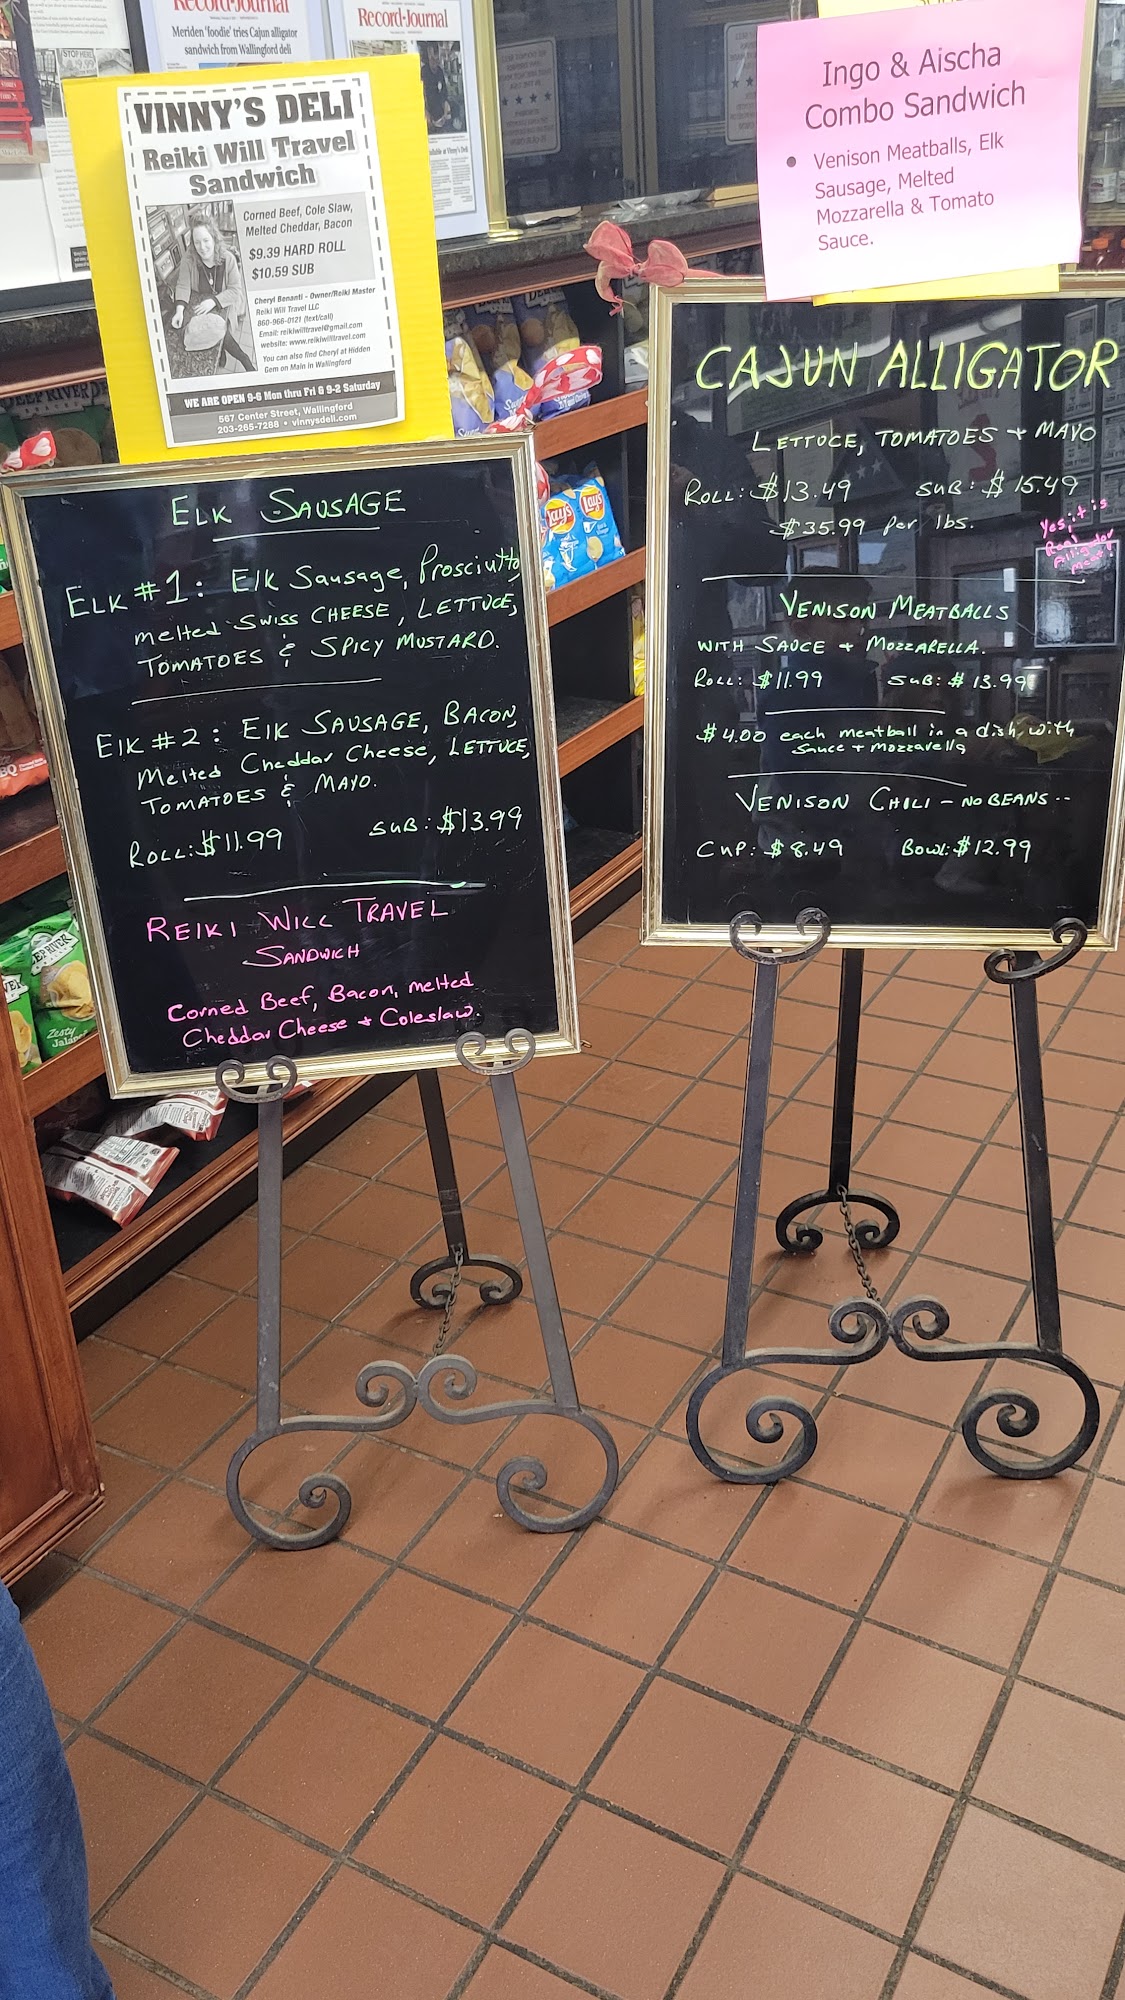 Record-Journal
Meriden 'foodie' tries Cajun alligator
sandwich from Wallingford deli
Record-Journal
VINNY'S DELI
Reiki Will Travel
Sandwich
Corned Beef, Cole Slaw,
Melted Cheddar, Bacon
$9.39 HARD ROLL
$10.59 SUB
Cheryl Benanti - Owner/Reiki Master
Reiki Will Travel LLC
860-966-0121 (text/call)
Email: reikiwilltravel@gmail.com
website: www.reikiwilltravel.com
You can also find Cheryl at Hidden
Gem on Main in Wallingford
WE ARE OPEN 9-6 Mon thru Fri & 9-2 Saturday
567 Center Street, Wallingford
203-265-7288 • vinnysdeli.com
ELK SAUSAGE
ELK #1: Elk Sausage, Prosciutto,
melted SWISS CHEESE, LETTUCE,
TOMATOES & SPICY MUSTARD.
Elk #2: Elk SAUSAGE, BACON,
Melted Cheddar Cheese, LETTUCE,
TOMATOES & MAYO.
ROLL: $11.99 SUB: $13.99
REIKI WILL TRAVEL
SANDWICH
Corned Beef, Bacon, melted
Cheddar Cheese + Coleslaw.
Ingo & Aischa
Combo Sandwich
• Venison Meatballs, Elk
Sausage, Melted
Mozzarella & Tomato
Sauce.
CAJUN ALLIGATOR
LETTUCE, TOMATOES + MAYO
ROLL: $13.49 SUB: $15.49
$35.99 per lbs.
Yes, it is
Real
Alligator
Meat!
VENISON MEATBALLS
WITH SAUCE + MOZZARELLA.
ROLL: $11.99 SUB: $13.99
$4.00 each meatball in a dish, with
sauce + mozzarella
VENISON CHILI - NO BEANS..
CUP: $8.49 Bowl: $12.99
Lay's
Lay's
DEEP RIVER
Zesty